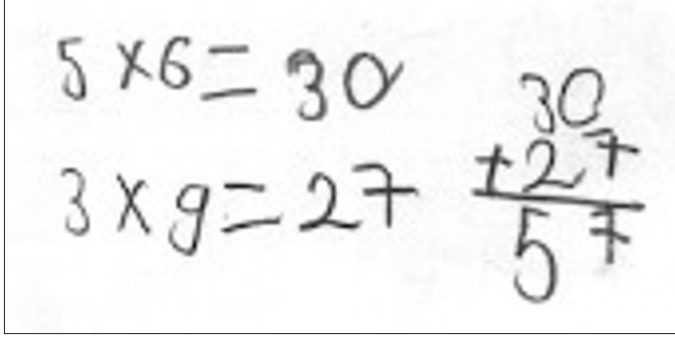 5 x 6 = 30
3 x 9 = 27
30
+27
57